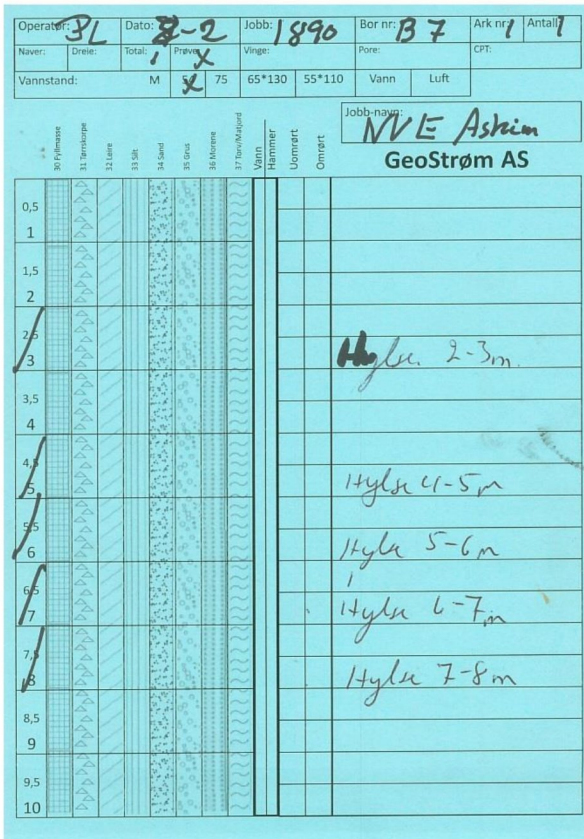 Operatør: BL Dato: 8-2 Jobb: 1890 Bor nr: B7 Ark nr: 1 Antall: 1
Naver: Dreie: Total: Prøve: X Vinge: Pore: CPT:
Vannstand: M X 75 65*130 55*110 Vann Luft
Jobb-navn: NVE Askim
GeoStrøm AS
30 Fyllmasse 31 Tørrskorpe 32 Leire 33 Silt 34 Sand 35 Grus 36 Morene 37 Torv/Matjord Vann Hammer Uomrørt Omrørt
0,5
1
1,5
2
2,5
3 Hylse 2-3m
3,5
4
4,5
5 Hylse 4-5m
5,5
6 Hylse 5-6m
6,5
7 Hylse 6-7m
7,5
8 Hylse 7-8m
8,5
9
9,5
10